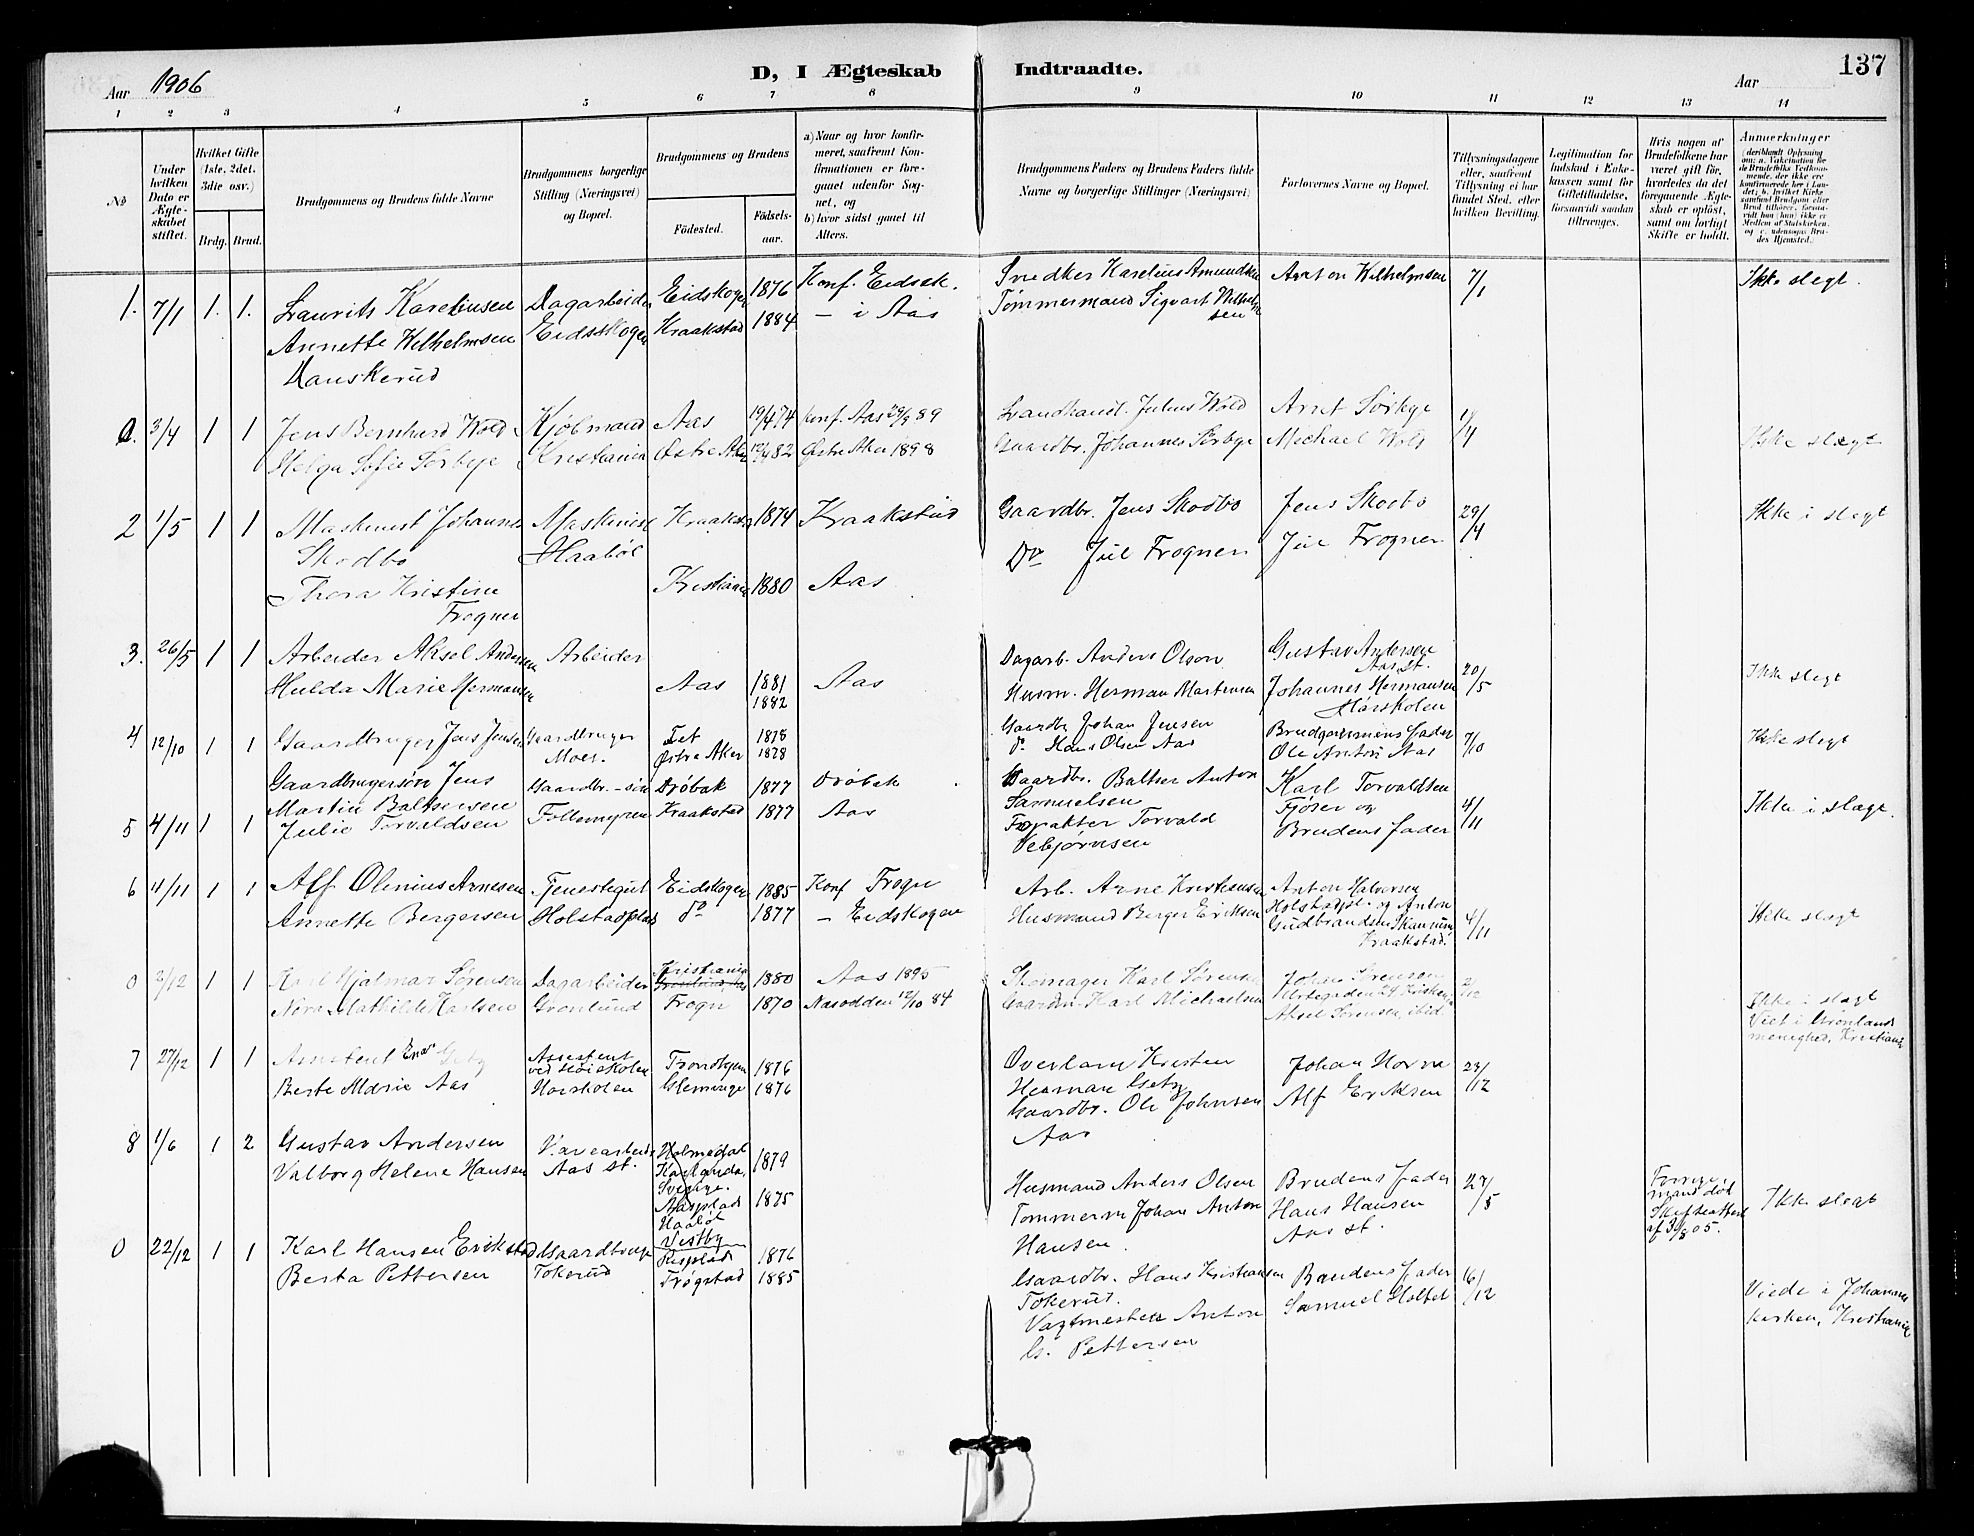 Aar 1906
D, I Ægteskab Indtraadte.
Aar
137
1 2 3 4 5 6 7 8 9 10 11 12 13 14
No
Under hvilken Dato er Ægteskabet stiftet.
Hvilket Gifte (1ste, 2det, 3die osv.)
Brdg. Brud.
Brudgommens og Brudens fulde Navne
Brudgommens borgerlige Stilling (Næringsvei) og Bopæl.
Brudgommens og Brudens
Födested.
Födsels-aar.
a) Naar og hvor konfirmeret, saafremt Konfirmationen er foregaaet udenfor Sognet, og
b) hvor sidst gaaet til Alters.
Brudgommens Faders og Brudens Faders fulde Navne og borgerlige Stillinger (Næringsvei)
Forlovernes Navne og Bopæl.
Tillysningsdagene eller, saafremt Tillysning ei har fundet Sted, efter hvilken Bevilling.
Legitimation for Indskud i Enkekassen samt for Giftetilladelse, forsaavidt saadan tiltrænges.
Hvis nogen af Brudefolkene har været gift för, hvorledes da det foregaaende Ægteskab er oplöst, samt om lovligt Skifte er holdt.
Anmerkninger
1. 7/1 1. 1. Laurits Kareliusen Dagarbeider Eidskogen 1876 Konf. Eidsk. Snedker Karelius Amundsen Anton Wilhelmsen 7/1 Ikke slegt.
Annette Wilhelmsen Eidsskogen Kraakstad 1884 — i Aas Tømmermand Sigvart Wilhelmsen
Danskerud
0. 3/4 1 1 Jens Bernhard Wold Kjøbmand Aas 19/4 74 Konf. Aas 29/9 89 Landhandl. Julius Wold Arnt Sørbye 1/4 Ikke slægt
Helga Sofie Sørbye Kristiania Østre Aker 82 Østre Aker 1898 Gaardbr. Johannes Sørbye Michael Wold
2 1/5 1 1 Maskinist Johannes Maskinist Kraakstad 1874 Kraakstad Gaardbr. Jens Skodbo Jens Skodbo 29/4 Ikke i slegt
Skodbo Haabøl Do Juel Frogner Juel Frogner
Thora Kristine Kristiania 1880 Aas
Frogner
3. 26/5 1 1 Arbeider Aksel Andersen Arbeider Dagarb. Anders Olsen Gustav Andersen Aas st. 20/5 Ikke slegt
Hulda Marie Hermansen Aas 1881 1882 Aas Husm. Herman Martinsen Johannes Hermansen
4 12/10 1 1 Gaardbruger Jens Jensen Gaardbruger Fet 1878 Gaardbr. Johan Jensen Brudgommens fader 7/10 Ikke slegt
Moer. Østre Aker 1878 Do Hans Olsen Aas Ole Anton Aas
Gaardbrugersøn Jens Gaardbr.-søn Drøbak 1877 Drøbak Gaardbr. Baltser Anton Karl Torvaldsen
Martin Baltsersen Kraakstad 1877 Aas Samuelsen Fjøser og
5 4/11 1 1 Julie Torvaldsen Follomyren Forpakter Torvald Brudens fader 4/11 Ikke i slægt.
Vebjørnsen
6 4/11 1 1 Alf Olenius Arnesen Tjenestegut Eidskogen 1885 Konf Frogn Arb. Arne Kristiansen Anton Halvorsen 4/11 Ikke slegt
Annette Bergersen Holstadplads do 1877 — Eidskogen Husmand Berger Eriksen Holstadpl. og Anton
Gudbrandsen
Kraakstad.
0 3/12 1 1 Karl Hjalmar Sørensen Dagarbeider Kristiania 1880 Aas 1895 Skomager Karl Sørensen Johan Sørensen 2/12 Ikke i slægt
Nora Mathilde Karlsen Grønlund Frogn 1870 Nesodden 12/10 84 Gaardbr. Karl Michaelsen
Aksel Sørensen, ibid. Viet i Grønlands menighed, Kristiania
7 27/12 1 1 Assistent Einar Getz Assistent ved Høiskolen Trondhjem 1876 Overlærer Kristen Johan Horne 23/12
Berte Marie Aas Norskolen Glemminge 1876 Herman Getz Alf Eriksen
Gaardbr. Ole Johnsen
Aas
8 1/6 1 2 Gustav Andersen Aas st. Holmedal Karlanda, Sverige. 1879 Husmand Anders Olsen Brudens fader 27/5
Valborg Helene Hansen Aasplads Haabøl 1875 Tømmerm Johan Anton Hans Hansen
Hansen. Aas st. Forrige mand død Skifteattest af 3/8 05. Ikke slegt
0 22/12 1 1 Karl Hansen Erikstad Gaardbruger Vestby 1876 Gaardbr. Hans Kristiansen Brudens fader 16/12
Berta Pettersen Tokerud Trøgstad 1885 Tokerud. Samuel Holtet Viede i Johannes kirken, Kristiania
Vagtmester Anton
G. Pettersen